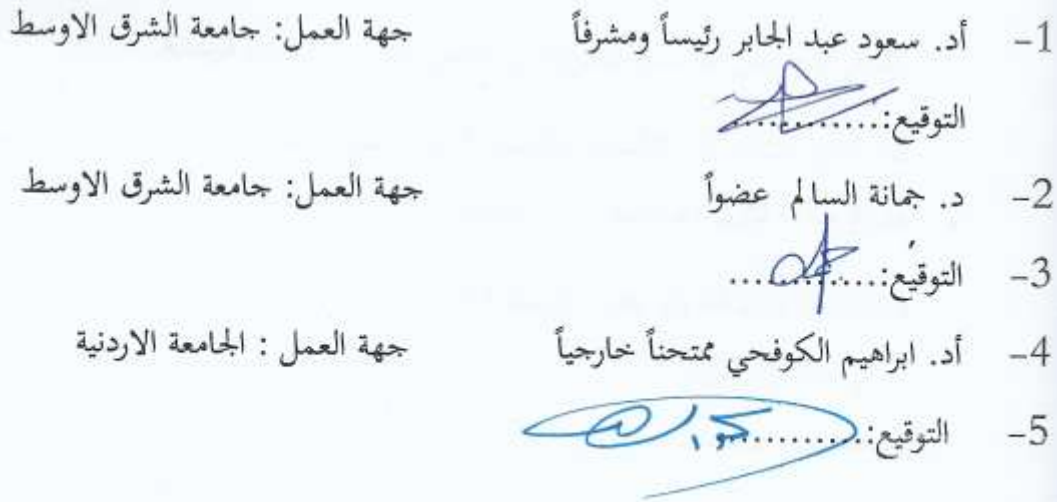 1- أد. سعود عبد الجابر رئيساً ومشرفاً جهة العمل: جامعة الشرق الاوسط
التوقيع:..............
2- د. جمانة السالم عضواً جهة العمل: جامعة الشرق الاوسط
3- التوقيع:..............
4- أد. ابراهيم الكوفحي ممتحناً خارجياً جهة العمل : الجامعة الاردنية
5- التوقيع:..............